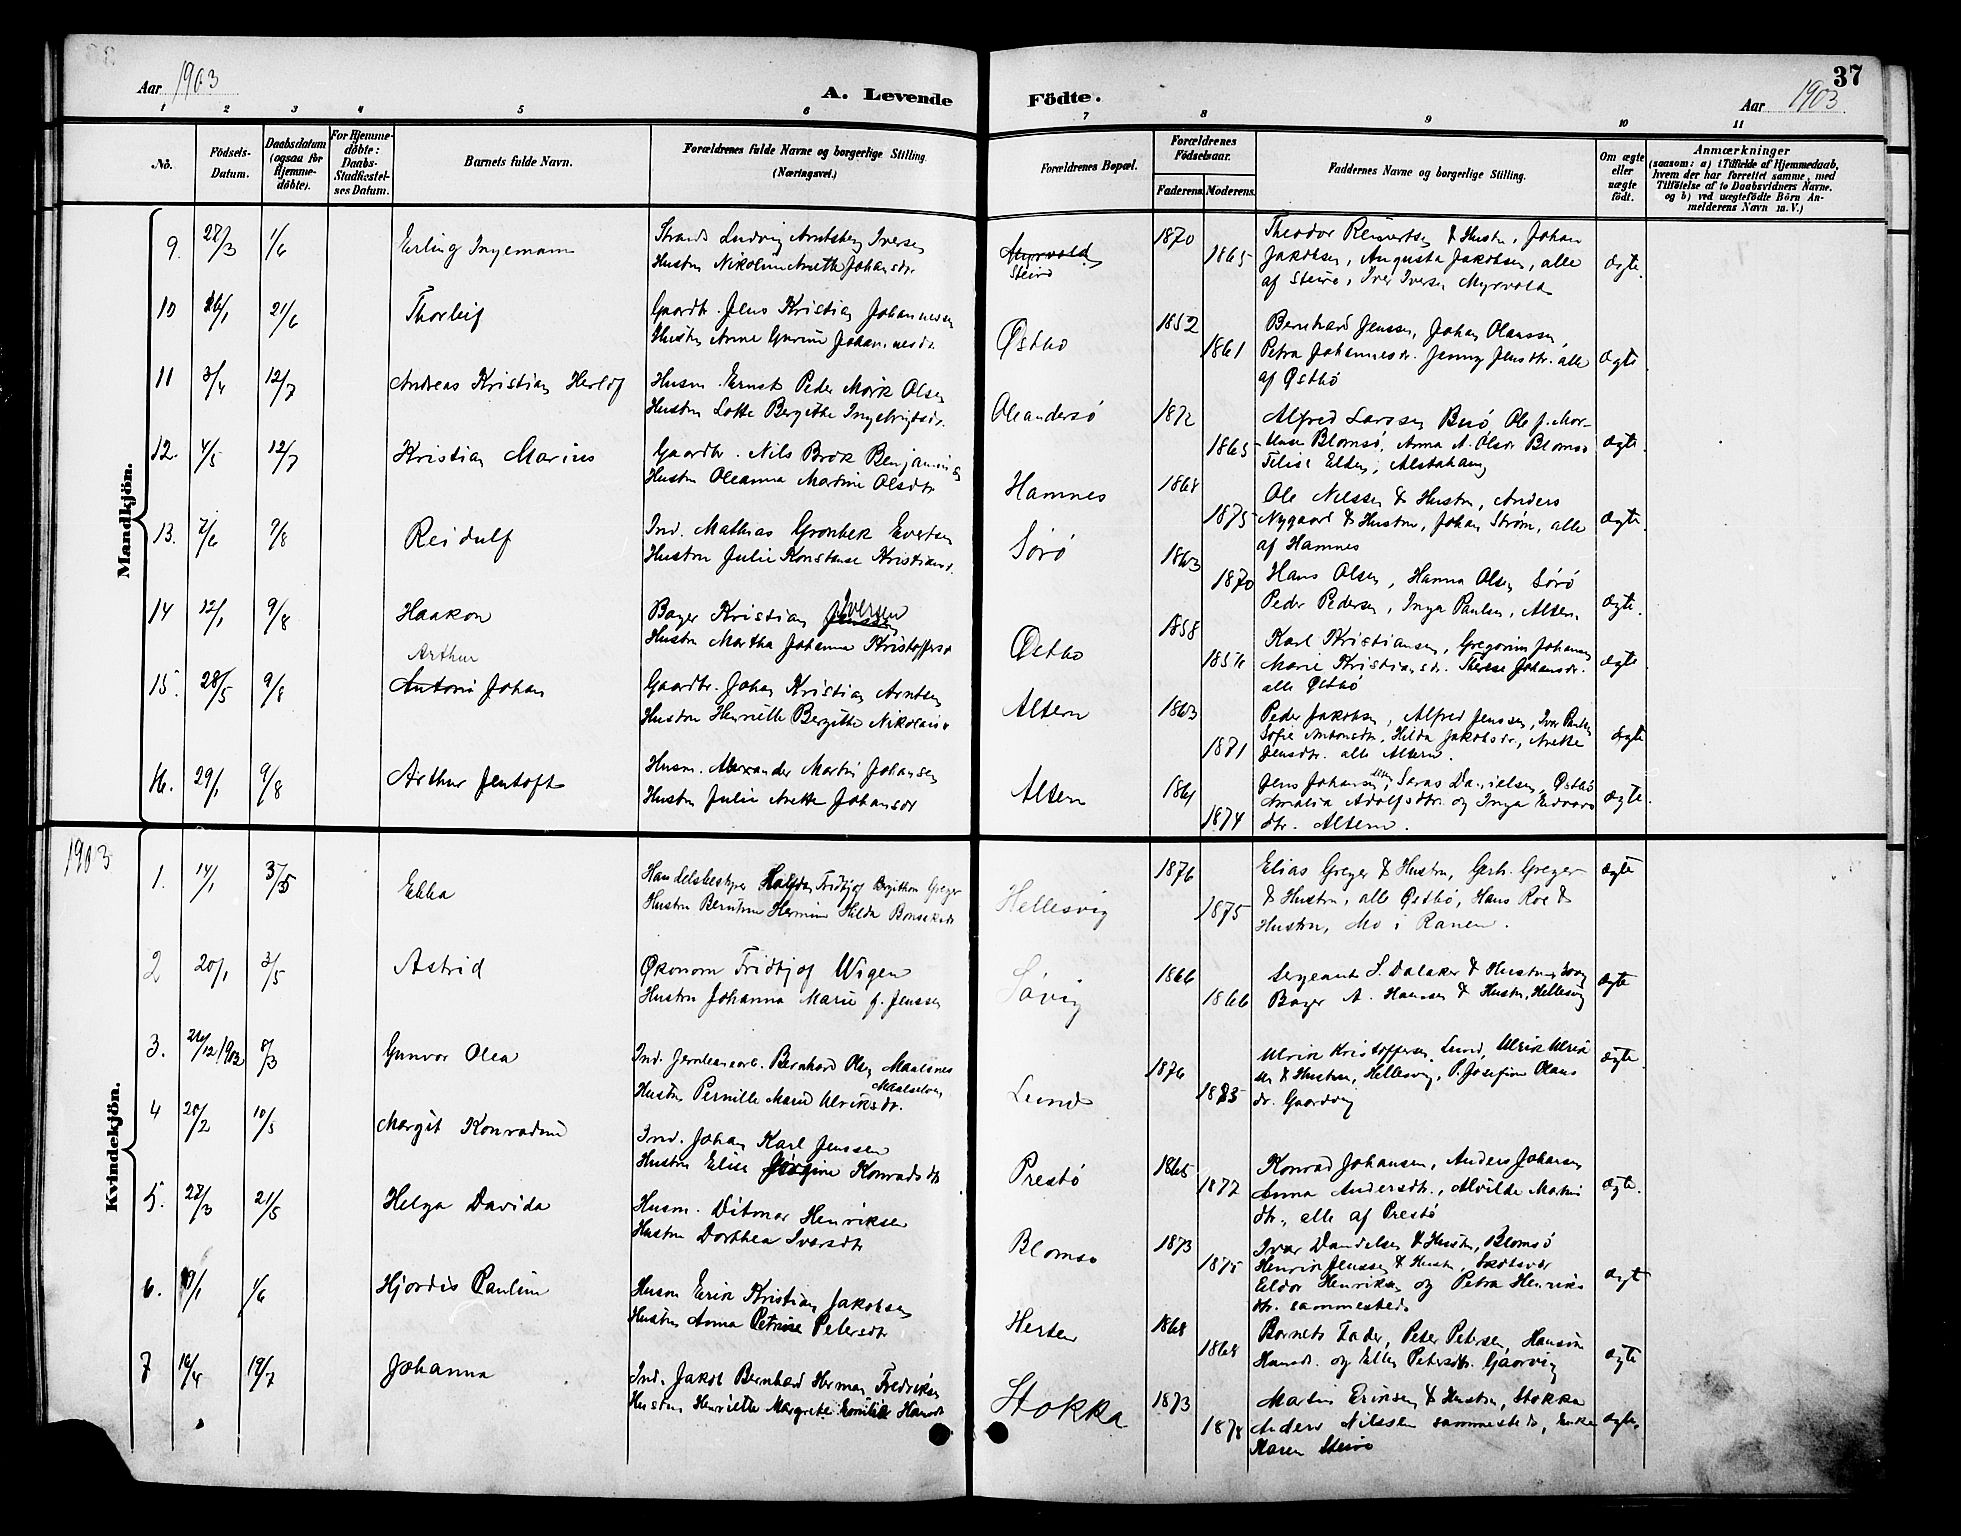 37
Aar 1903
A. Levende Födte.
Aar 1903
1 2 3 4 5 6 7 8 9 10 11
No.
Födsels-Datum.
Daabsdatum (ogsaa for Hjemme-döbte).
For Hjemme-döbte: Daabs-Stadfæstel-ses Datum.
Barnets fulde Navn.
Forældrenes fulde Navne og borgerlige Stilling. (Næringsvei.)
Forældrenes Bopæl.
Forældrenes Födselsaar.
Faderens. Moderens.
Faddernes Navne og borgerlige Stilling.
Om ægte eller uægte født.
Anmærkninger
(saasom: a) i Tilfælde af Hjemmedaab, hvem der har forrettet samme, med Tilföielse af to Daabsvidners Navne. og b) ved uægtefödte Börn An-melderens Navn m. V.)
Mandkjön.
9. 1/6 Erling Ingemann
Strands. Ludvig Arntsberg Iversen
Hustru Nikoline Anette Johansdr.
Myrvold
Steiro
1870 1865
Theodor Reinertsen & Hustru, Johan
Jakobsen, Augusta Jakobsen, alle
af Steiro, Iver Iversen Myrvold
ægte.
10 26/1 21/6 Thorleif
Gaardbr. Jens Kristian Johannesen
Hustru Anne Gurine Johannesdr
Østbø
1852 1861
Bernhard Jenssen, Johan Olaussen,
Petra Johannesdr. Jenny Jensdtr. alle
af Østbø
ægte
11 3/4 12/7 Andreas Kristian Herlof
Husm. Ernst Peder Mørk Olsen
Hustru Lotte Bergitte Ingebrigtsdr.
Oleandersø
1872 1865
Alfred Larssen Buø, Ole f. Mor-
Blomsø, Anna A. Olsdr Blomsø
Alstahaug
ægte
12. 4/5 12/7 Kristian Marius
Gaardbr. Nils Brok Benjaminsen
Hustru Oleanna Martine Olsdtr
Hamnes
1868 1875
Ole Nilssen & Hustru, Anders
Nygaard & Hustru, Johan Strøm, alle
af Hamnes
ægte.
13. 7/6 9/8 Reidulf
Ind. Mathias Grønbek Evertsen
Hustru Julie Konstanse Kristiansd.
Sørø
1863 1870
Hans Olsen, Hanna Olsen Sørø
Peder Pedersen, Inga Paulsen, Altern.
ægte.
14 12/1 9/8 Haakon
Bager Kristian Iversen
Hustru Martha Johanna Kristoffersd
Østbø
1858 1856
Karl Kristiansen, Gregorius Johansen
Marie Kristiansdr. Therese Johansdr.
alle Østbø
ægte
15. 28/5 9/8 Arthur
Antoni Johan
Gaardbr. Johan Kristian Arntsen
Hustru Henriette Bergitte Nikolaisd
Altern
1863 1871
Peder Jakobsen, Alfred Jenssen, Iver Paulsen
Sofie Antonsdtr, Hilda Jakobsdr, Anette
Jensdtr. alle Altern.
ægte
16. 29/1 9/8 Arthur Jentoft
Husm. Alexander Martin Johansen
Hustru Julie Anette Johansdr
Altern
1861 1874
Jens Johansen, Saras Danielsen, Østbø
Amalia Adolfsdtr. og Inga Edvards
dtr. Altern.
ægte.
1903
Kvindekjön.
1. 14/1 3/5 Ebba
Handelsbestyrer Halfdan Fridtjof Greger
Hustru Herminie Hilda
Hellesvig
1876 1875
Elias Greger & Hustru, Gerh. Greger
& Hustru, alle Østbø, Hans Roe &
Hustru, Mo i Ranen.
ægte
2 20/1 3/5 Astrid
Økonom Fridtjof Wigen
Hustru Johanna Marie f. Jenssen
Søvig
1866 1866
Sergeant S. Dalaker & Hustru, Søvig
Bager A. Hansen & Hustru, Hellesvig
ægte
3. 8/3 Gunvor Olea
Ind. Jernbanearb. Bernhard Olsen Maalsnes
Maalselven
Hustru Pernille Marie Ulriksdr.
Lund
1876
Ulrik Kristoffersen Lund, Ulrik Ulrik
sen & Hustru, Hellesvig, P. Josefine Olaus
dr. Gaardvig
ægte
4 20/2 10/5 Margit Konradine
Ind. Johan Karl Jenssen
Hustru Elise Jørgine Konradsdtr
Prestø
1865 1872
Konrad Johansen, Anders Johansen
Anna Andersdtr., Alvilde Martin
dtr., alle af Prestø
ægte.
5. 28/3 21/5 Helga Davida
Husm. Ditmar Henriksen
Hustru Dorthea Iversdtr
Blomsø
1873 1875
Ivar Danielsen & Hustru, Blomsø
Henrik Jenssen & Hustru, Skotsvær
Eldor Henriksen og Petra Henriks
dtr. sammesteds
ægte
6. 1/6 Hjordis Pauline
Husm Erik Kristian Jakobsen
Hustru Anna Petrine Petersdtr
Herten
1868 1868
Barnets Fader, Peter Petersen, Hansine
Hansdr. og Ellen Petersdtr. Gaarvig
ægte
7 19/7 Johanna
Ind. Jakob Bernhard Herman Fredriksen
Hustru Henriette Margrete Emilie Hansdtr
Stokka
1873 1878
Martin Eriksen & Hustru, Stokka
Anders Nilssen sammesteds, Enke
Karen Steiro
ægte.